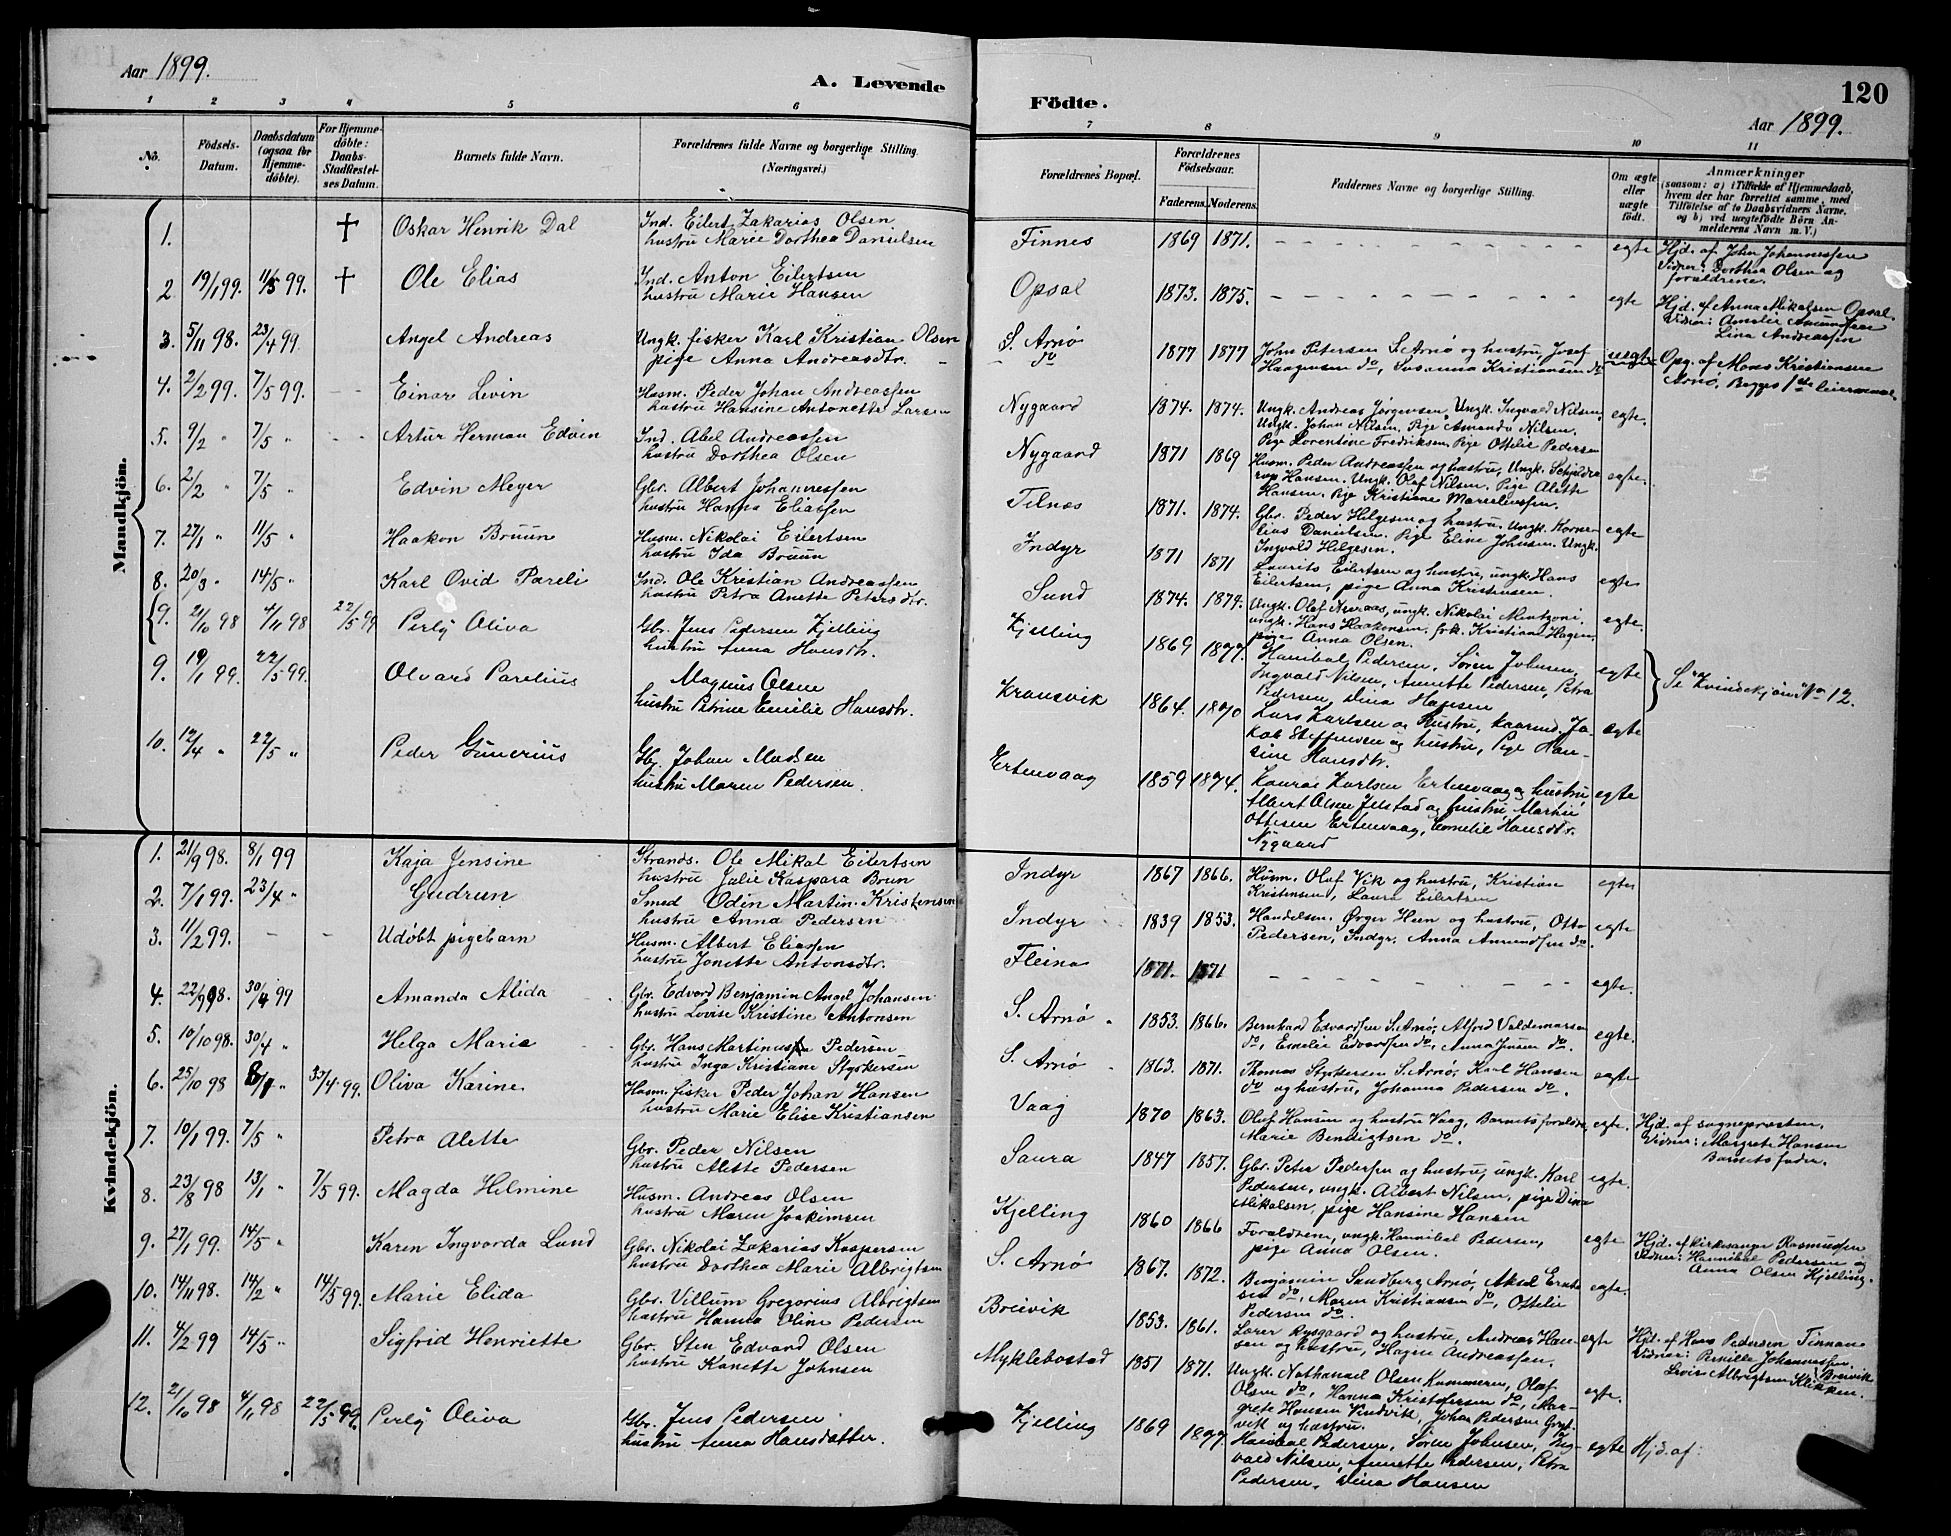 Aar 1899.
A. Levende
1 2 3 4 5 6
No.
Födsels-Datum.
Daabsdatum (ogsaa for Hjemme-döbte).
For Hjemme-döbte: Daabs-Stadfæstelses Datum.
Barnets fulde Navn.
Forældrenes fulde Navne og borgerlige Stilling. (Næringsvei.)
Mandkjön.
1. † Oskar Henrik Dal Ind. Eilert Zakarias Olsen
hustru Marie Dorthea Danielsen
2 19/1 99. 11/5 99. † Ole Elias Ind. Anton Eilertsen
hustru Marie Hansen
3. 5/11 98. 23/4 99 Angel Andreas Ungk. fisker Karl Kristian Olsen
pige Anna Andreasdtr.
4. 2/2 99. 7/5 99. Einar Levin Husm. Peder Johan Andreassen
hustru Hansine Antonette Larsen
5. 9/2 " 7/5 " Artur Herman Edvin Ind. Abel Andreassen
hustru Dorthea Olsen
6. 2/2 " 7/5 " Edvin Meyer Gbr. Albert Johannessen
hustru Hanna Eliassen
7. 27/1 " 11/5 " Haakon Bruun Husm. Nikolai Eilertsen
hustru Ida Bruun
8. 20/3 " 14/5 " Karl Ovid Pareli Ind. Ole Kristian Andreassen
hustru Petra Anette Petersdtr.
9. 21/10 98 4/11 98 22/5 99 Perly Oliva Gbr. Jens Pedersen Kjelling
hustru Anna Hansdtr.
9. 19/1 99. 22/5 99. Olvard Parelius Magnus Olsen
hustru Petrine Emilie Hansdtr.
10. 12/4 " 22/5 " Peder Gunerius Gbr. Johan Madsen
hustru Maren Pedersen.
Kvindekjön.
1. 21/9 98. 8/1 99 Kaja Jensine Strands. Ole Mikal Eilertsen
hustru Julie Kaspara Brun
2. 7/1 99. 23/4 " Gudrun Smed Odin Martin Kristensen
hustru Anna Pedersen
3. 11/2 99. - - Udöbt pigebarn Husm. Albert Eliassen
hustru Jonette Antonsdtr.
4. 22/9 98. 30/4 99 Amanda Alida Gbr. Edvard Benjamin Angel Johansen
hustru Lovise Kristine Antonsen
5. 10/10 98. 30/4 " Helga Marie Gbr. Hans Martinus Pedersen
hustru Inga Kristiane Styrkersen
6. 25/10 98 8/1 " 23/4 99. Oliva Karine Husm. fisker Peder Johan Hansen
hustru Marie Elise Kristiansen
7. 10/1 99. 7/5 " Petra Alette Gbr. Peder Nilsen
hustru Alette Pedersen
8. 23/8 98 13/1 " 7/5 99. Magda Helmine Husm. Andreas Olsen
hustru Maren Joakimsen
9. 27/1 99. 14/5 " Karen Ingvarda Lund Gbr. Nikolai Zakarias Kaspersen
hustru Dorthea Marie Albrigtsen
10. 14/11 98. 14/2 " 14/5 99. Marie Elida Gbr. Villum Gregorius Albrigtsen
hustru Hanna Oline Pedersen
11. 4/2 99 14/5 " Sigfrid Henriette Gbr. Sten Edvard Olsen
hustru Kanette Johnsen
12. 21/10 98 4/11 98 22/5 99. Perly Oliva Gbr. Jens Pedersen
hustru Anna Hansdatter.
Födte.
120
Aar 1899.
7 8 9 10 11
Forældrenes Bopæl.
Forældrenes Födselsaar.
Faderens. Moderens.
Faddernes Navne og borgerlige Stilling.
Om ægte eller uægte födt.
Anmærkninger
(saasom: a) i Tilfælde af Hjemmedaab,
hvem der har forrettet samme, med
Tilföielse af to Daabsvidners Navne,
og b) ved uægtefödte Börn An-
melderens Navn m. V.)
Finnes 1869 1871. egte Hjd. af John Johannessen
Vidner: Dorthea Olsen og
forældrene.
Opsal 1873. 1875. egte Hjd. af Anna Mikalsen Opsal.
Vidner: Amalie Amundsen
Lina Andreassen
S. Arnö
do 1877 1877 John Petersen S. Arnö og hustru, Josef
Haagensen do, Susanna Kristiansen do uegte Opg. af Mons Kristiansen
Arnö, Begges 1ste leiermaal
Nygaard 1874. 1874. Ungk. Andreas Jörgensen, Ungk. Ingvald Nilsen,
Ungk. Johan Nilsen, Pige Amanda Nilsen,
Pige Lorentine Fredriksen, Pige Ottelie Pedersen egte.
Nygaard 1871 1869 Husm. Peder Andreassen og hustru, Ungk. Schjelde
rup Hansen. Ungk. Olaf Nilsen, Pige Alette
Hansen. Pige Kristiane Marseliussen. egte.
Tilnes 1871. 1874. Gbr. Peder Helgesen og hustru, Ungk. Korne-
lius Danielsen, Pige Eline Johnsen. Ungk.
Ingvald Helgesen. egte
Indyr 1871 1871 Laurits Eilertsen og hustru, ungk. Hans
Eilertsen, pige Anna Kristensen. egte
Sund 1874. 1874. Ungk. Olaf ungk. Nikolai
ungk. Hans Haakensen, frk. Kristian Hagen,
pige Anna Olsen. egte.
Kjelling 1869 1877. Hanibal Pedersen, Sören Johnsen,
Ingvald Nilsen, Annette Pedersen, Petra
Pedersen, Dina Hansen egte Se Kvindekjön No 12.
Kransvik 1864. 1870 Lars Karlsen og hustru, Ja-
kob Steffensen og hustru, Pige Han-
sine Hansdtr. egte
Ertenvaag 1859 1874. Karlsen Ertenvaag og hustru,
Albert Olsen Jelstad og hustru, Martin
Ottesen Ertenvaag, Emelie Hansdtr.
Nygaard egte
Indyr 1867 1866. Husm. Olaf Vik og hustru, Kristian
Kristensen, Laura Eilertsen egte
Indyr 1839 1853. Handelsm. Örger Heen og hustru, Otto
Pedersen, Indyr. Anna Amundsen do. egte
Fleina 1871. 1871 egte.
S. Arnö 1853. 1866. Bernhard Edvardsen S. Arnö, Alfred Valdemarsen
do, Emelie Edvardsen do, Anna Jensen do. egte.
S. Arnö 1863. 1871. Thomas Styrkersen S. Arnö, Karl Hansen
do og hustru, Johanna Pedersen do. egte
Vaag 1870 1863. Olaf Hansen og hustru Vaag, Barnets forældre,
Marie Bendigtsen do. egte. Hjd. af sognepresten.
Vidner: Margrete Hansen
Barnets fader.
Saura 1847 1857. Gbr. Peter Pedersen og hustru, ungk. Karl
Pedersen, ungk. Albert Nilsen, pige Dina
Mikalsen, pige Hansine Hansen egte.
Kjelling 1860 1866 Forældrene, ungk. Hannibal Pedersen,
pige Anna Olsen. egte Hjd. af kirkesanger Rasmussen
Vidner: Hannibal Pedersen og
Anna Olsen Kjelling.
S. Arnö 1867. 1872. Benjamin Sandberg Arnö, Aksel Ernst-
sen do, Maren Kristiansen do, Ottelie
Pedersen do. egte.
Breivik 1853. 1861. Lorer Rysgaard og hustru, Andreas Han-
sen og hustru, Hagen Andreassen. egte Hjd. af Hans Pedersen Finnans
Vidner: Pernille Johannessen. Breivik
Lovis Albrigtsen Klikken.
Myklebostad 1851 1871. Ungk. Nathanael Olsen Kummeren, Olaf
Olsen do, Hanna Kristofersen do, Mar-
grete Hansen Vindvik, Johan Pedersen
vik og hustru. egte.
Kjelling 1869 1877 Hanibal Pedersen, Sören Johnsen, Ing-
vald Nilsen, Annette Pedersen, Petra
Pedersen, Dina Hansen egte Hjd. af: